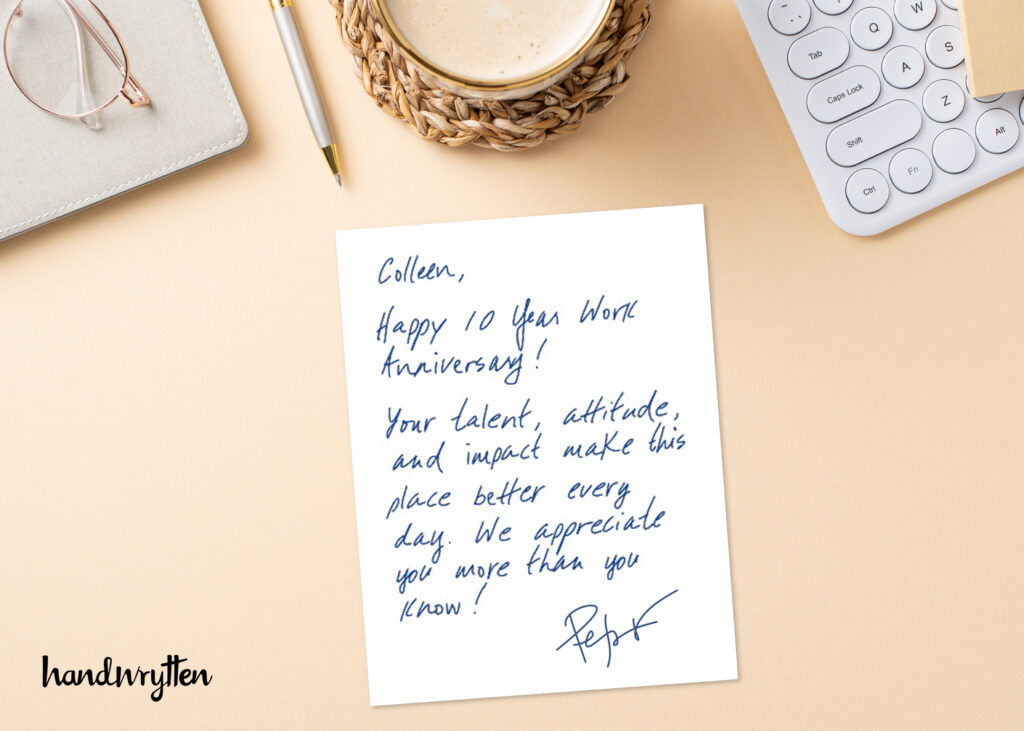 Q W
Tab
A S
Caps Lock
Z
Shift
Alt
Fn
Ctrl
Colleen,
Happy 10 Year Work
Anniversary!
Your talent, attitude,
and impact make this
place better every
day. We appreciate
you more than you
know!
handwrytten